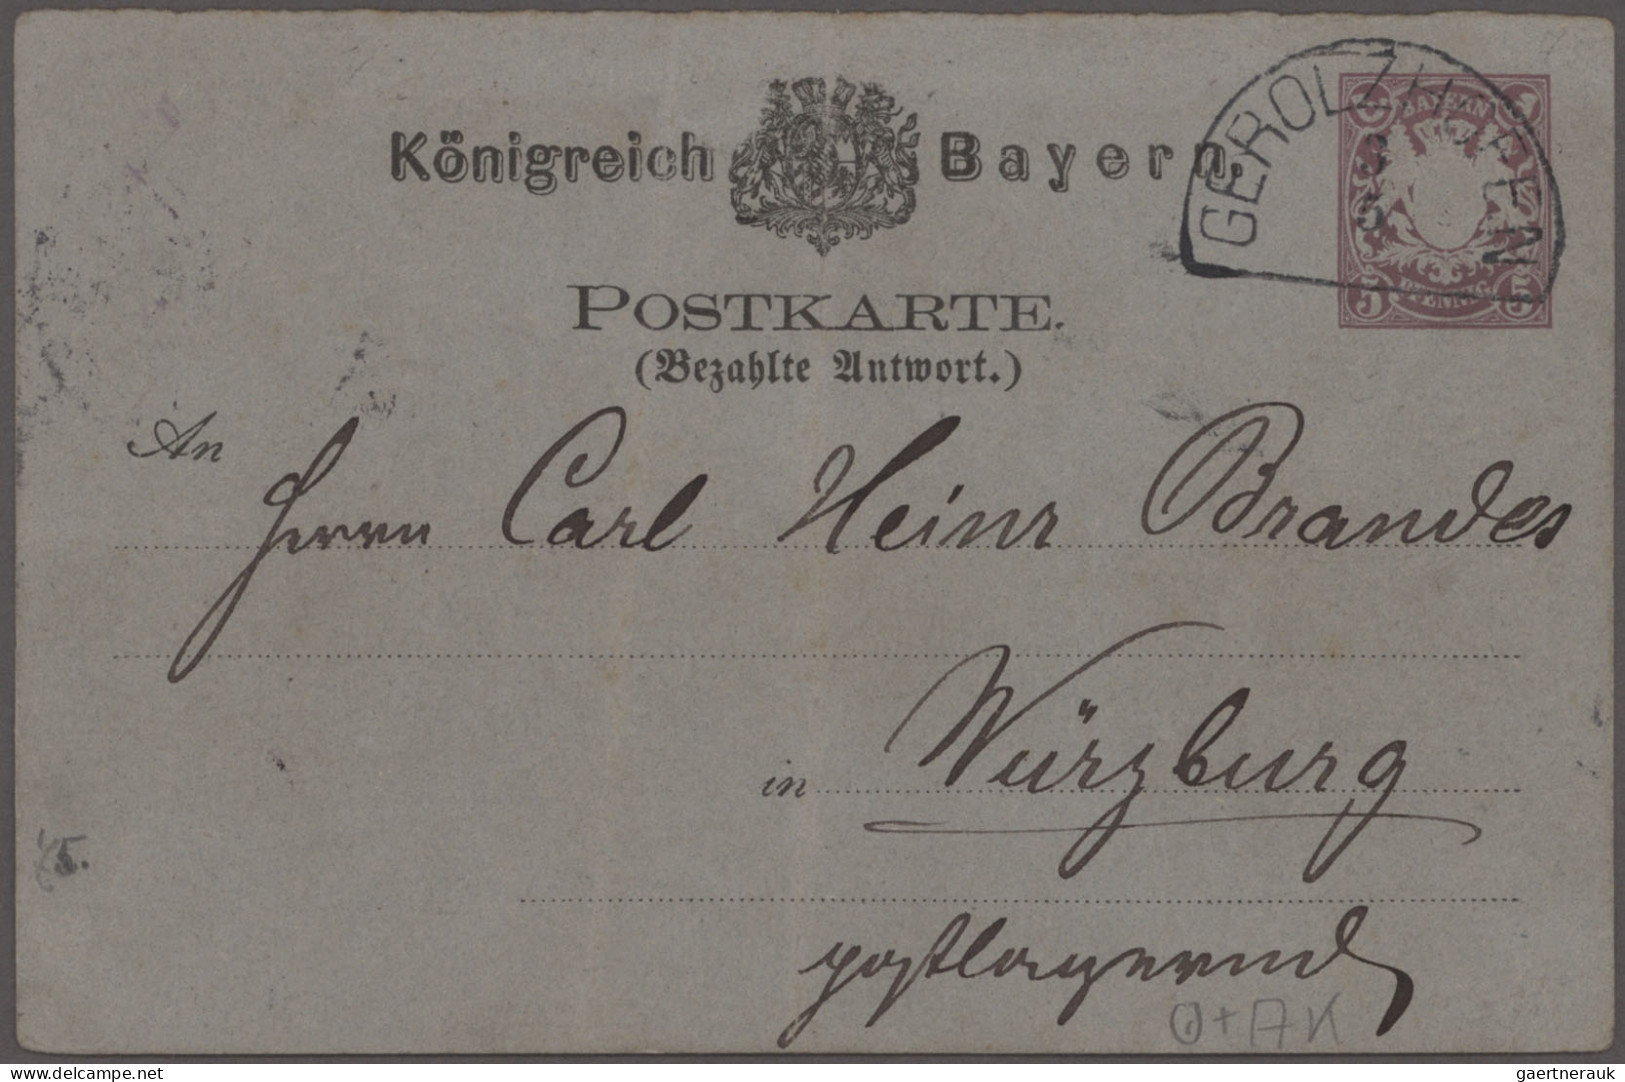 Königreich Bayern.
GEROLZHOFEN
3
5
BAYERN
5 PFENNIG 5
POSTKARTE.
(Bezahlte Antwort.)
An
Herrn Carl Heinr Brandes
in Würzburg
postlagernd
O+AK
delcampe.net
gaertnerauk